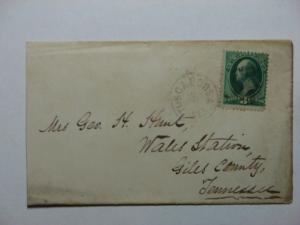 Mrs Geo. H. Hunt,
Wales Station,
Giles County,
Tennessee